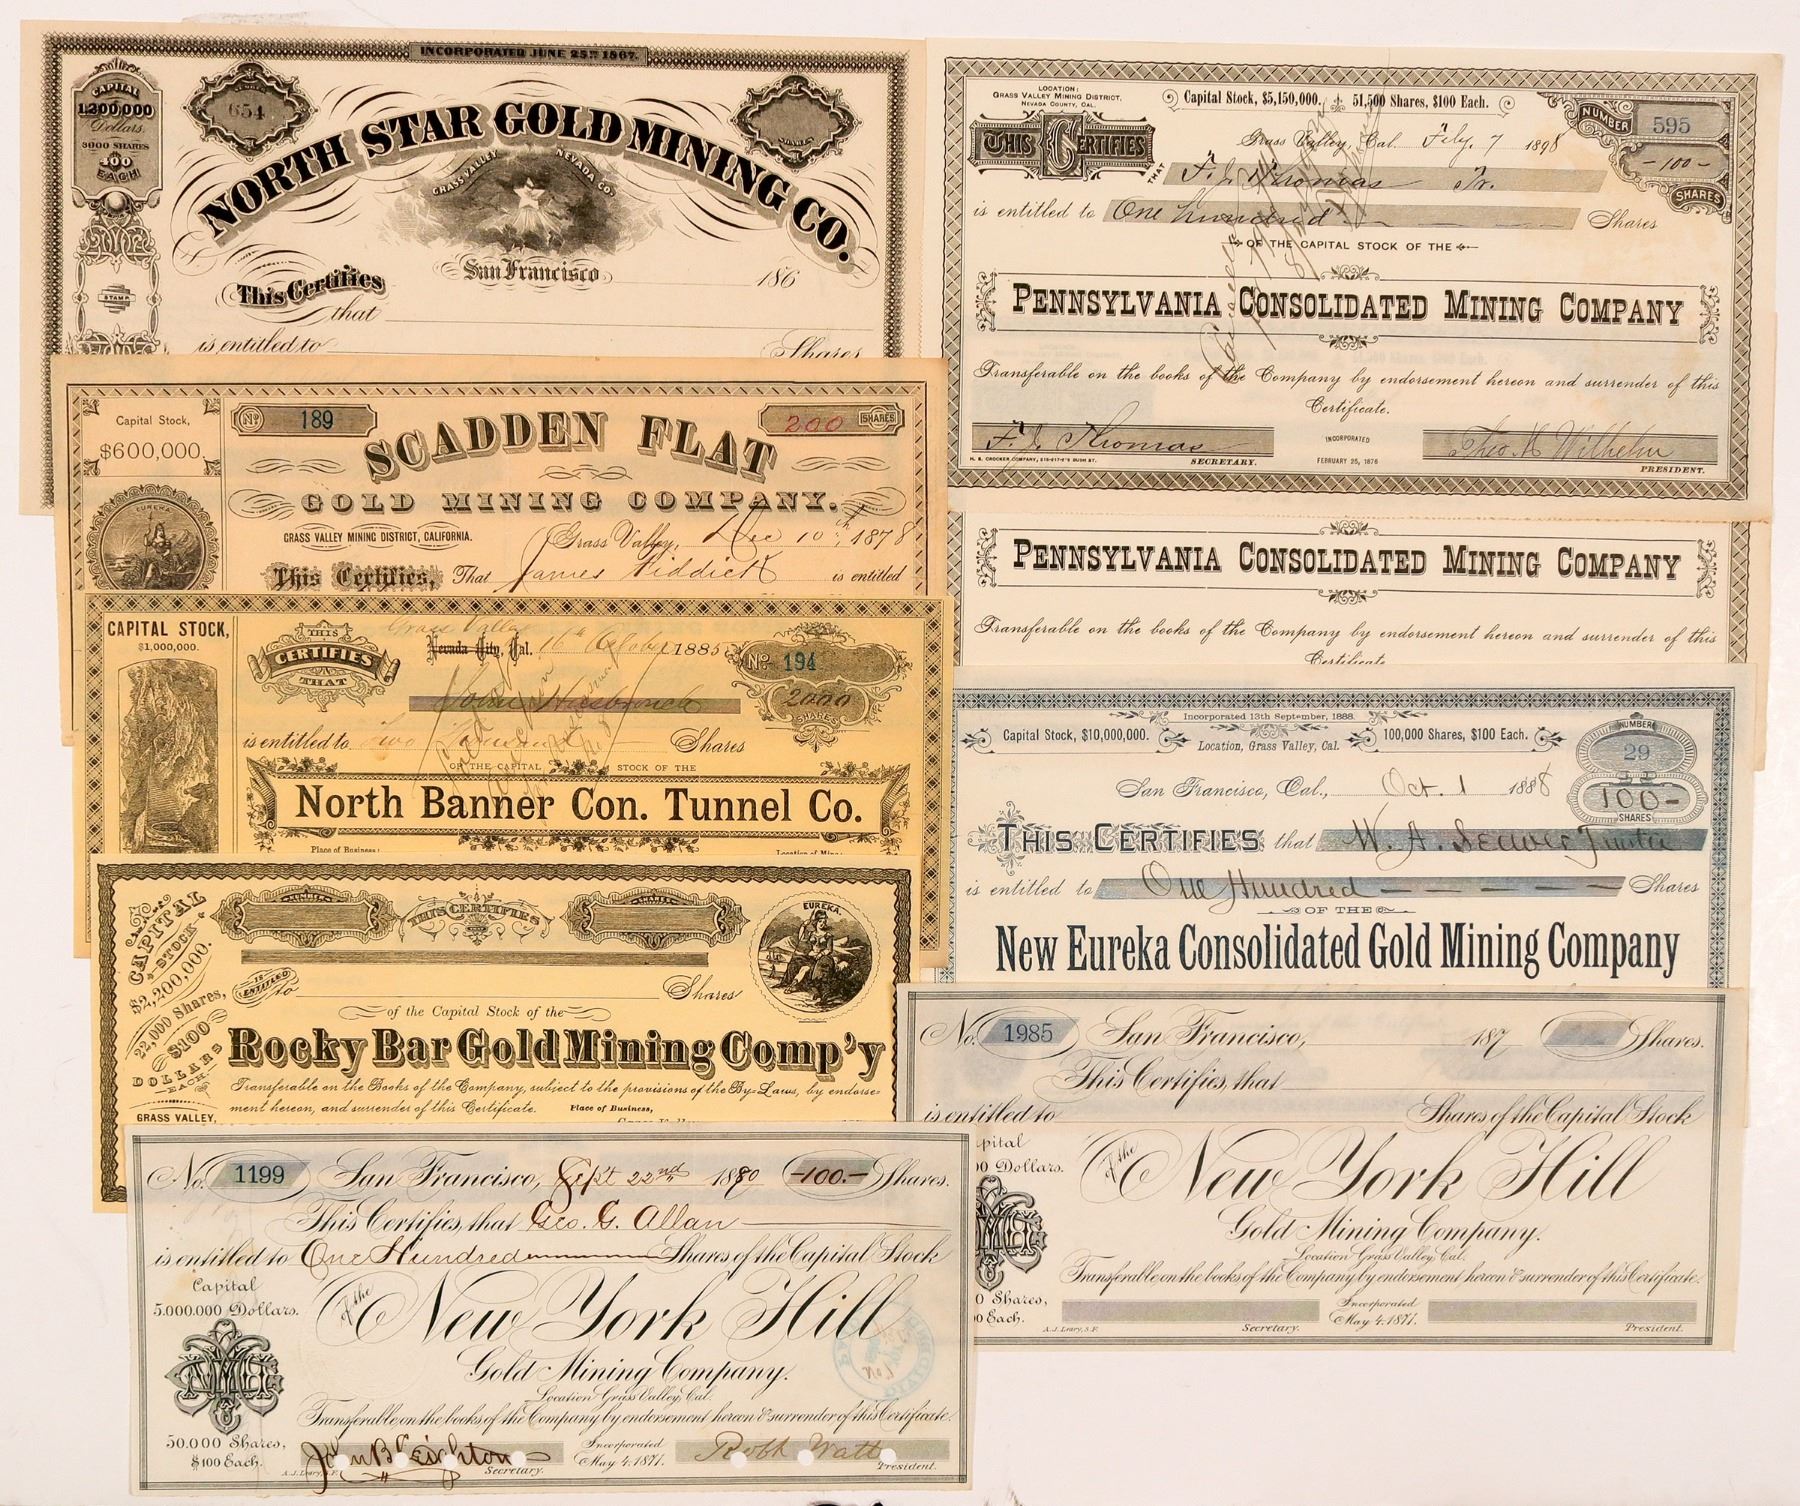 INCORPORATED JUNE 25TH 1867.
CAPITAL
1,200,000
Dollars.
3000 SHARES
400
EACH
654
SHARES
NORTH STAR GOLD MINING CO.
GRASS VALLEY NEVADA CO.
San Francisco 186
This Certifies
that
STAMP
is entitled to Shares
Capital Stock,
$600,000.
No. 189
200 SHARES
SCADDEN FLAT
GOLD MINING COMPANY.
EUREKA
GRASS VALLEY MINING DISTRICT, CALIFORNIA.
Grass Valley, Dec 10th, 1878
This Certifies, That James Tiddick is entitled
CAPITAL STOCK,
$1,000,000.
THIS
CERTIFIES
THAT
Grass Valley
Nevada City, Cal. 16th October 1885
No. 194
2000
SHARES
John Hasbrouck
is entitled to Two Thousand Shares
OF THE CAPITAL STOCK OF THE
North Banner Con. Tunnel Co.
Place of Business: Location of Mine:
CAPITAL
STOCK
$2,200,000.
22,000 Shares,
$100
DOLLARS
EACH
GRASS VALLEY,
NUMBER
THIS CERTIFIES
SHARES
EUREKA.
IS ENTITLED
to Shares
of the Capital Stock of the
Rocky Bar Gold Mining Comp'y
Transferable on the Books of the Company, subject to the provisions of the By-Laws, by endorse-
ment hereon, and surrender of this Certificate. Place of Business,
No. 1199 San Francisco, Sept 22nd 1880 -100.- Shares.
This Certifies, that Geo. G. Allan
is entitled to One Hundred Shares of the Capital Stock
Capital
5.000.000 Dollars.
of the New York Hill
Gold Mining Company.
Location Grass Valley, Cal.
Transferable on the books of the Company by endorsement hereon & surrender of this Certificate.
50.000 Shares,
$100 Each.
John B Leighton
Secretary.
Incorporated
May 4. 1877.
Robt Watt
President.
A.J. Leary, S.F.
LOCATION:
GRASS VALLEY MINING DISTRICT,
NEVADA COUNTY, CAL.
Capital Stock, $5,150,000. 51,500 Shares, $100 Each.
NUMBER 595
-100-
SHARES
THIS CERTIFIES
Grass Valley, Cal. Feby. 7 1898
THAT F. J. Thomas Tr.
is entitled to One hundred Shares
OF THE CAPITAL STOCK OF THE
PENNSYLVANIA CONSOLIDATED MINING COMPANY
Transferable on the books of the Company by endorsement hereon and surrender of this
Certificate.
F. J. Thomas
SECRETARY.
INCORPORATED
FEBRUARY 25, 1876
Theo H Wilhelm
PRESIDENT.
PENNSYLVANIA CONSOLIDATED MINING COMPANY
Transferable on the books of the Company by endorsement hereon and surrender of this
Certificate
Incorporated 13th September, 1888.
Capital Stock, $10,000,000. Location, Grass Valley, Cal. 100,000 Shares, $100 Each.
NUMBER
29
100-
SHARES
San Francisco, Cal., Oct. 1 1888
THIS CERTIFIES that W. A. Seaver Trustee
is entitled to One Hundred Shares
OF THE
New Eureka Consolidated Gold Mining Company
No. 1985 San Francisco, 187 Shares.
This Certifies, that
is entitled to Shares of the Capital Stock
pital
00 Dollars.
of the New York Hill
Gold Mining Company.
Location Grass Valley, Cal.
Transferable on the books of the Company by endorsement hereon & surrender of this Certificate.
0 Shares,
00 Each.
A.J. Leary, S.F.
Secretary.
Incorporated
May 4. 1877.
President.